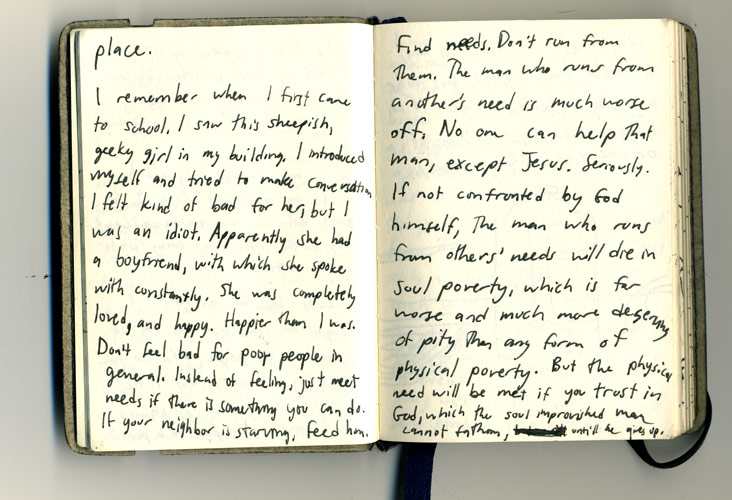 place.
I remember when I first came
to school. I saw this sheepish,
geeky girl in my building. I introduced
myself and tried to make conversation
I felt kind of bad for her, but I
was an idiot. Apparently she had
a boyfriend, with which she spoke
with constantly. She was completely
loved, and happy. Happier than I was.
Don't feel bad for poor people in
general. Instead of feeling, just meet
needs if there is something you can do.
If your neighbor is starving, feed him.
Find needs. Don't run from
them. The man who runs from
another's need is much worse
off. No one can help that
man, except Jesus. Seriously.
If not confronted by God
himself, The man who runs
from others' needs will die in
soul poverty, which is far
worse and much more deserving
of pity than any form of
physical poverty. But the physical
need will be met if you trust in
God, which the soul improvished man
cannot fathom, untill he gives up.